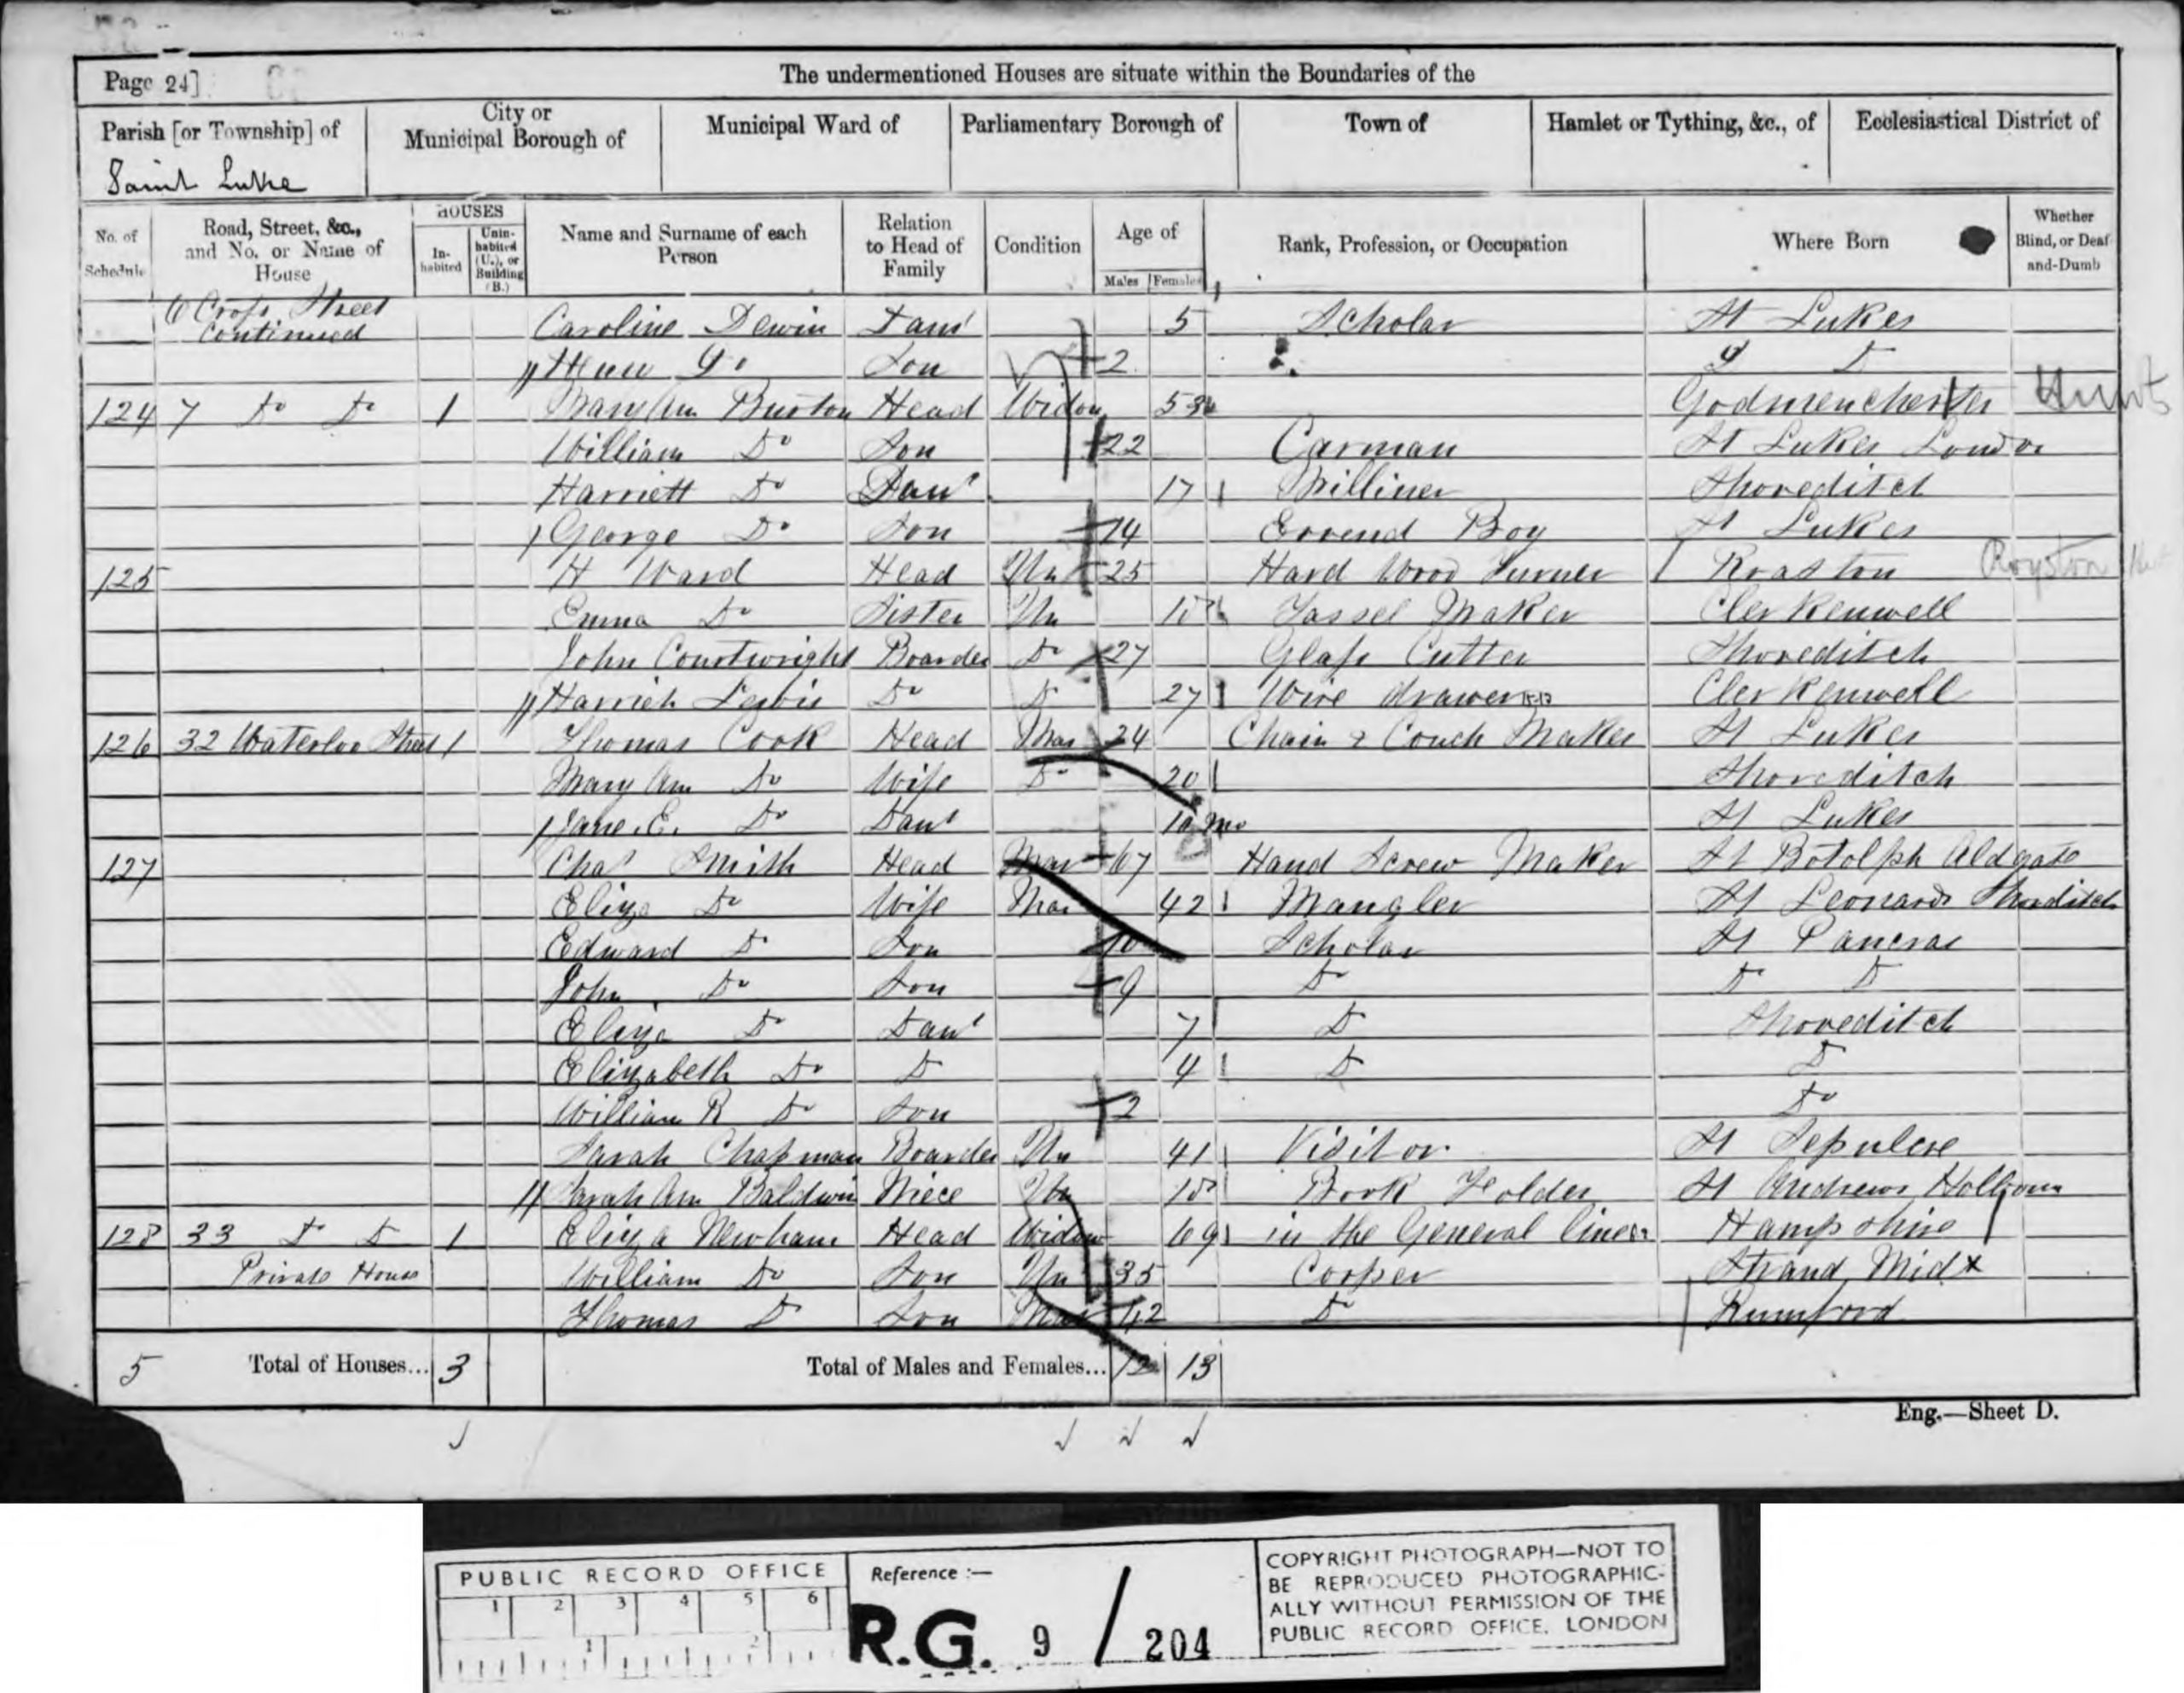 Page 24]
The undermentioned Houses are situate within the Boundaries of the
Parish [or Township] of
Saint Luke
City or Municipal Borough of
Municipal Ward of
Parliamentary Borough of
Town of
Hamlet or Tything, &c., of
Ecclesiastical District of
No. of Schedule
Road, Street, &c., and No. or Name of House
HOUSES
In-habited
Unin-habited (U.), or Building (B.)
Name and Surname of each Person
Relation to Head of Family
Condition
Age of
Males
Females
Rank, Profession, or Occupation
Where Born
Whether Blind, or Deaf-and-Dumb
6 Cross Street continued Caroline Dewin Daur 5 Scholar St Lukes
Do Son 2 D D
124 7 Do Do 1 Mary Ann Burton Head Widow 53 Godmenchester Hunts
William Do Son 22 Carman St Lukes London
Harriett Do Daur 17 Milliner Shoreditch
George Do Son 14 Errend Boy St Lukes
125 H Ward Head Un 25 Hard Wood Turner Roaston Royston
Emma Do Sister Un 18 Tassel Maker Clerkenwell
John Courtwright Boarder Do 27 Glass Cutter Shoreditch
Do D 27 Wire drawer Clerkenwell
126 32 Waterloo Street 1 Thomas Cook Head Mar 24 Chair & Couch Maker St Lukes
Mary Ann Do Wife Do 20 Shoreditch
Jane. E. Do Daur 10 Mo St Lukes
127 Chas Smith Head Mar 67 Hand Screw Maker St Botolph Aldgate
Eliza Do Wife Mar 42 Mangler St Leonards Shorditch
Edward Do Son 10 Scholar St Pancras
John Do Son 9 Do D D
Eliza Do Daur 7 D Shoreditch
Elizabeth Do D 4 D D
William R Do Son 2 Do
Sarah Chapman Boarder Un 41 Visitor St Sepulcre
Sarah Ann Baldwin Niece Un 18 Book Folder St Andrews Holborn
128 33 D D 1 Eliza Newham Head Widow 69 in the General line Hampshire
Private House William Do Son Un 35 Cooper Strand Midx
Thomas D Son Mar 42 D Rumford
5 Total of Houses... 3 Total of Males and Females... 12 13
Eng.—Sheet D.
PUBLIC RECORD OFFICE
1 2 3 4 5 6
1 2
Reference :—
R.G. 9 / 204
COPYRIGHT PHOTOGRAPH—NOT TO
BE REPRODUCED PHOTOGRAPHIC-
ALLY WITHOUT PERMISSION OF THE
PUBLIC RECORD OFFICE, LONDON